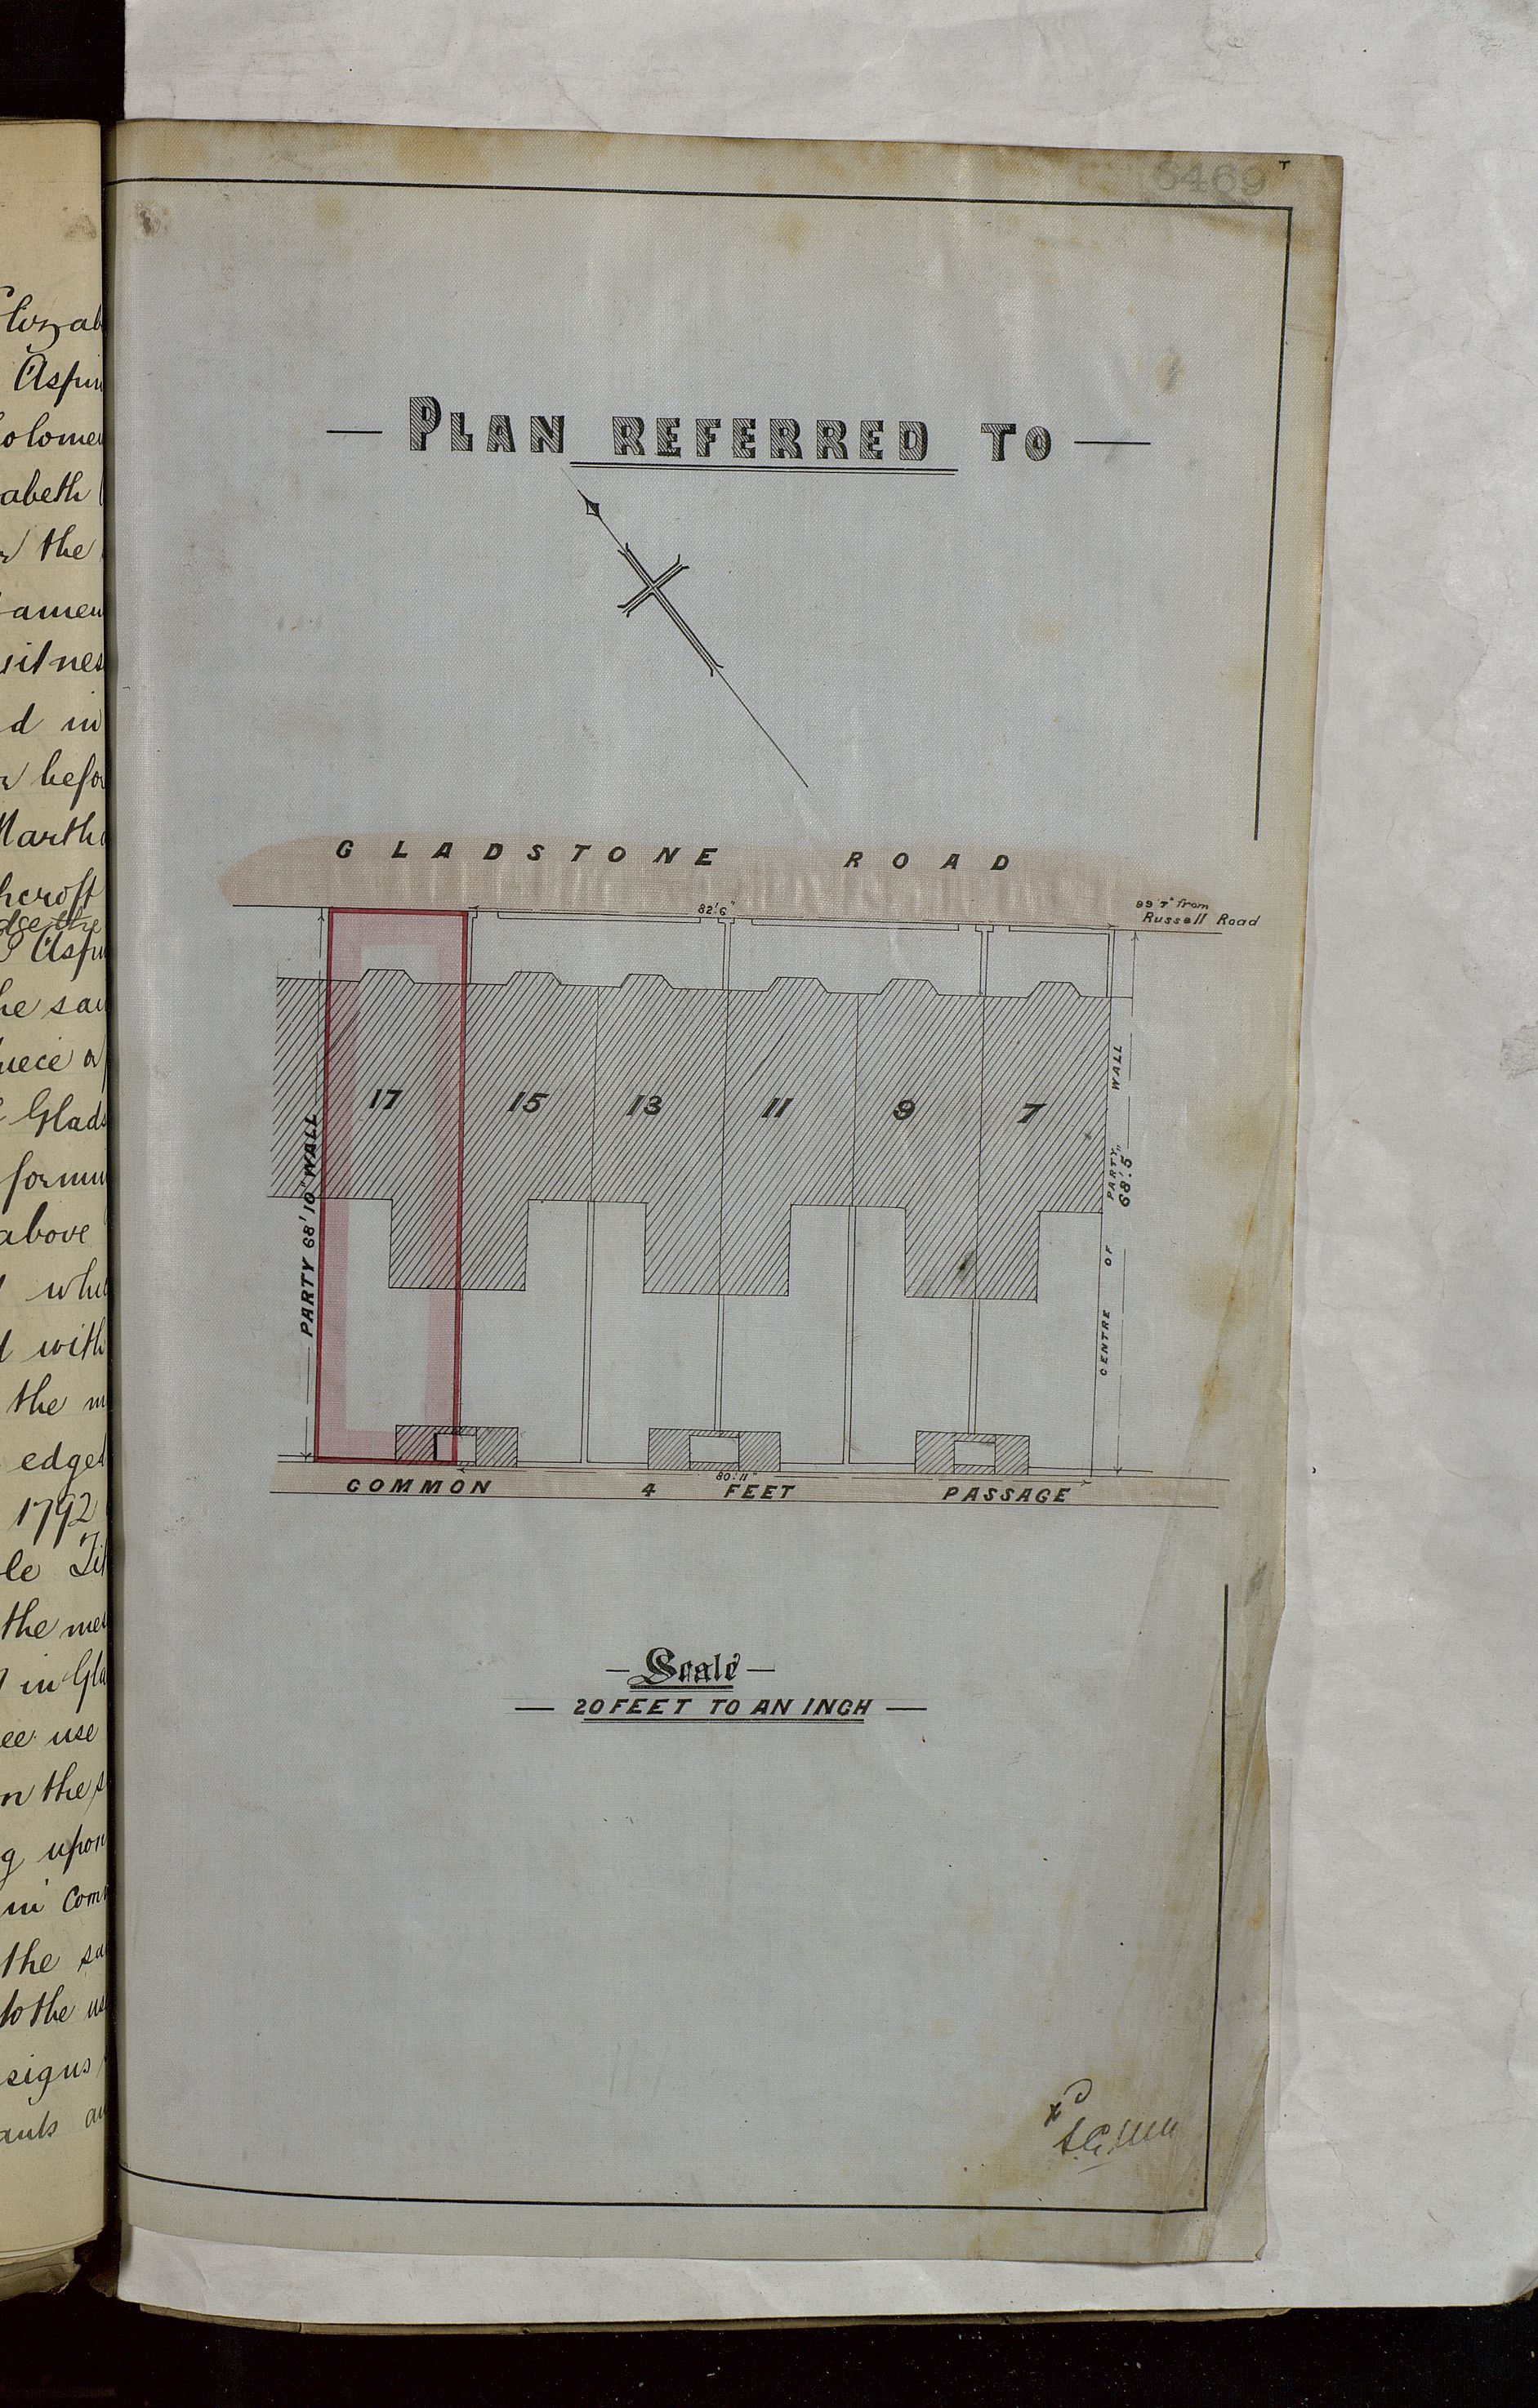 Elizab
Aspin
olome
abeth
the
amen
witnes
d in
befor
Martha
hcroft
Aspin
he sai
piece or
Glads
formin
above
whi
d with
the m
edged
1792
le Tit
the me
in Gla
ee use
on the s
g upon
in Com
the sa
to the us
signs
ants an
5469
PLAN REFERRED TO
GLADSTONE ROAD
82'6"
99'7" from
Russell Road
17 15 13 11 9 7
PARTY 68'10" WALL
CENTRE OF PARTY WALL
68'.5"
80'.11"
COMMON 4 FEET PASSAGE
Scale
20 FEET TO AN INCH